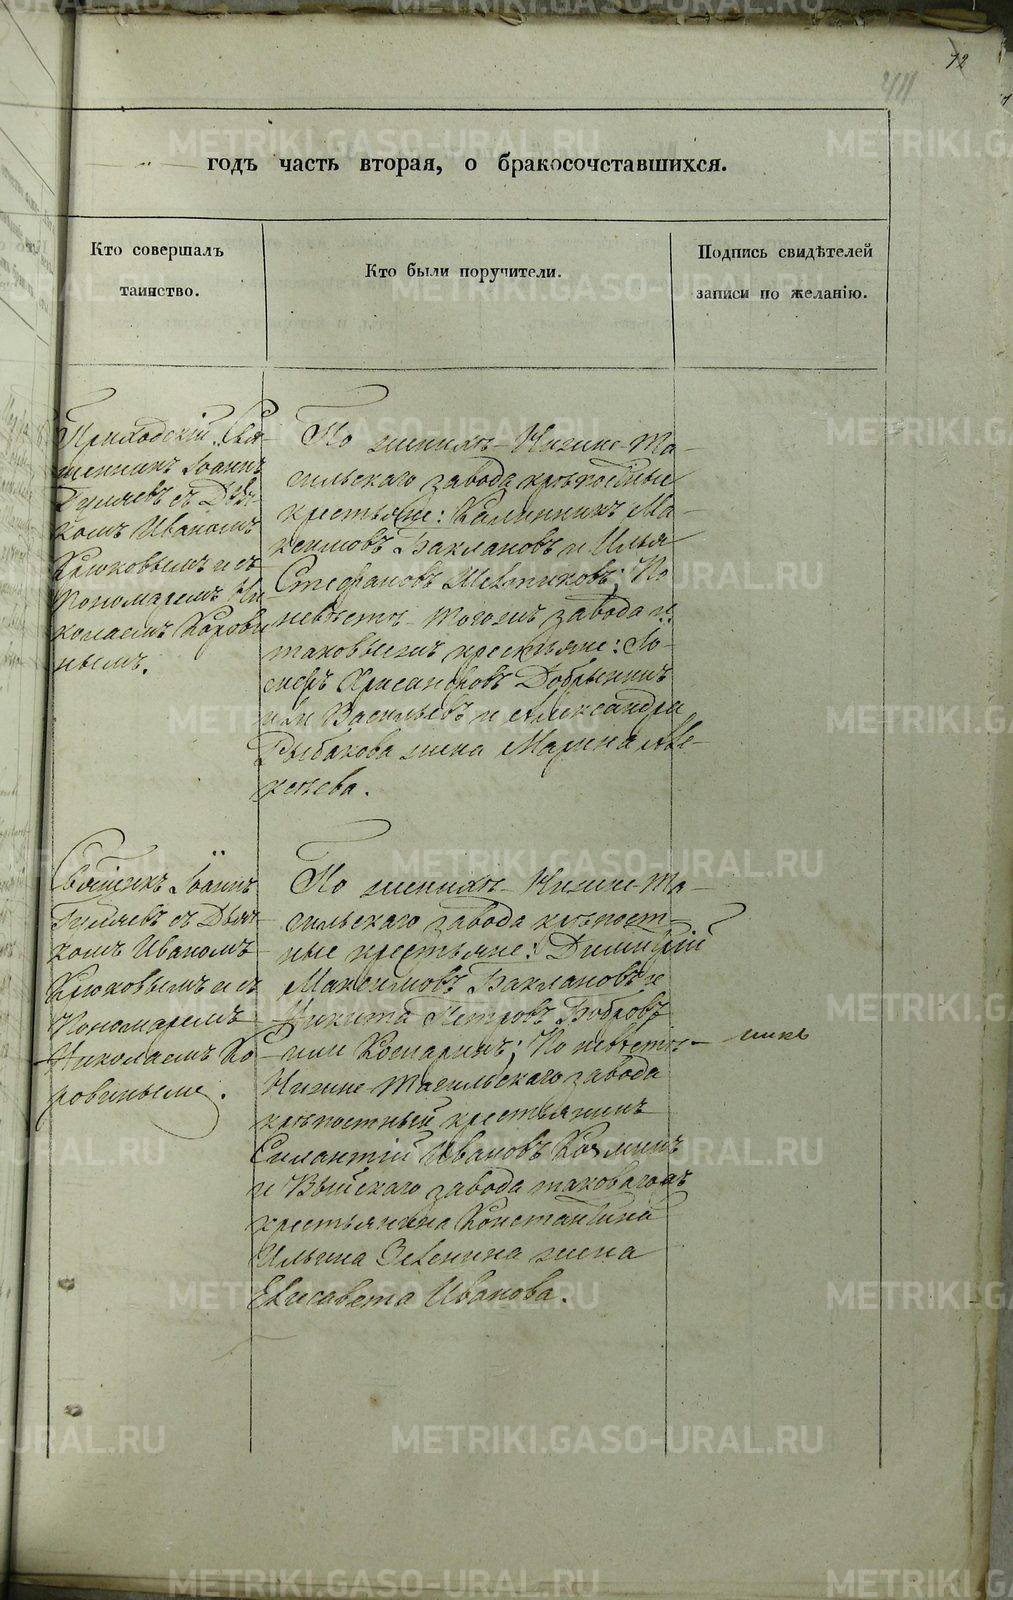 12
411
годъ часть вторая, о бракосочетавшихся.
Кто совершалъ
таинство.
Кто были поручители.
Подпись свидѣтелей
записи по желанію.
Приходскій Свя-
щенникъ Іоаннъ
Гуляевъ съ Дьяч-
комъ Иваномъ
Крюковымъ и съ
Пономаремъ Ни-
колаемъ Корови
нымъ.
По женихѣ Нижне-Та-
гильскаго завода крѣпостные
крестьяне: Калинникъ Ма-
ксимовъ Баклановъ и Илья
Стефановъ Шевтиковъ; По
невѣстѣ тогожъ завода и
таковыежъ крестьяне: Іо-
сифъ Хрисанфовъ Добрынинъ
или Васильевъ и Александра
Рыбакова жена Марина Але-
ксѣева.
Священникъ Іоаннъ
Гуляевъ съ Дьяч-
комъ Иваномъ
Крюковымъ и съ
Пономаремъ
Николаемъ Ко-
ровинымъ.
По женихѣ Нижне-Та-
гильскаго завода крѣпост-
ные крестьяне: Димитрій
Максимовъ Баклановъ и
Никита Петровъ Бобровъ
или Косаринъ; По невѣстѣ
Нижне Тагильскаго завода
крѣпостный крестьянинъ
Силантій Ивановъ Козминъ
и Выйскаго завода таковагожъ
крестьянина Константина
Ильина Зеленина жена
Елисавета Иванова.
METRIKI.GASO-URAL.RU